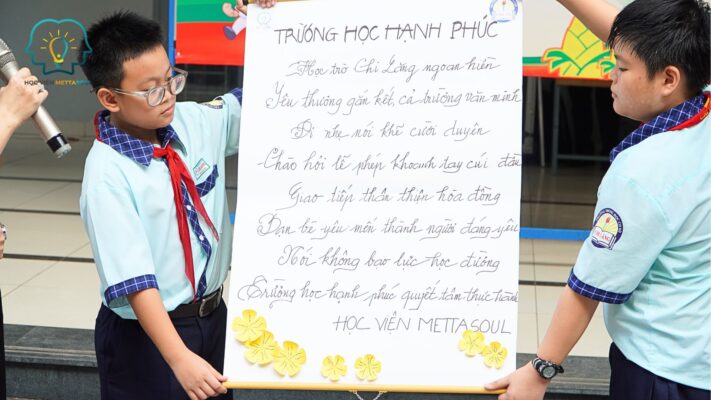 TRƯỜNG HỌC HẠNH PHÚC
Học trò Chi Lăng ngoan hiền
Yêu thương gắn kết, cả trường văn minh
Đi nhẹ nói khẽ cười duyên
Chào hỏi lễ phép khoanh tay cúi đầu
Giao tiếp thân thiện hòa đồng
Bạn bè yêu mến thành người đáng yêu
Nói không bạo lực học đường
Trường học hạnh phúc quyết tâm thực hành
HỌC VIỆN METTASOUL
HỌC VIỆN METTASOUL